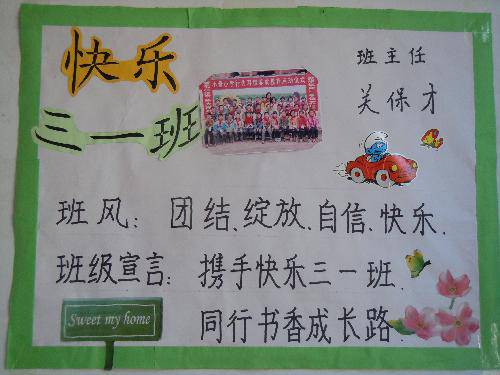 快乐
三一班
班主任
关保才
班风：团结、绽放、自信、快乐.
班级宣言：携手快乐三一班.
同行书香成长路.
Sweet my home